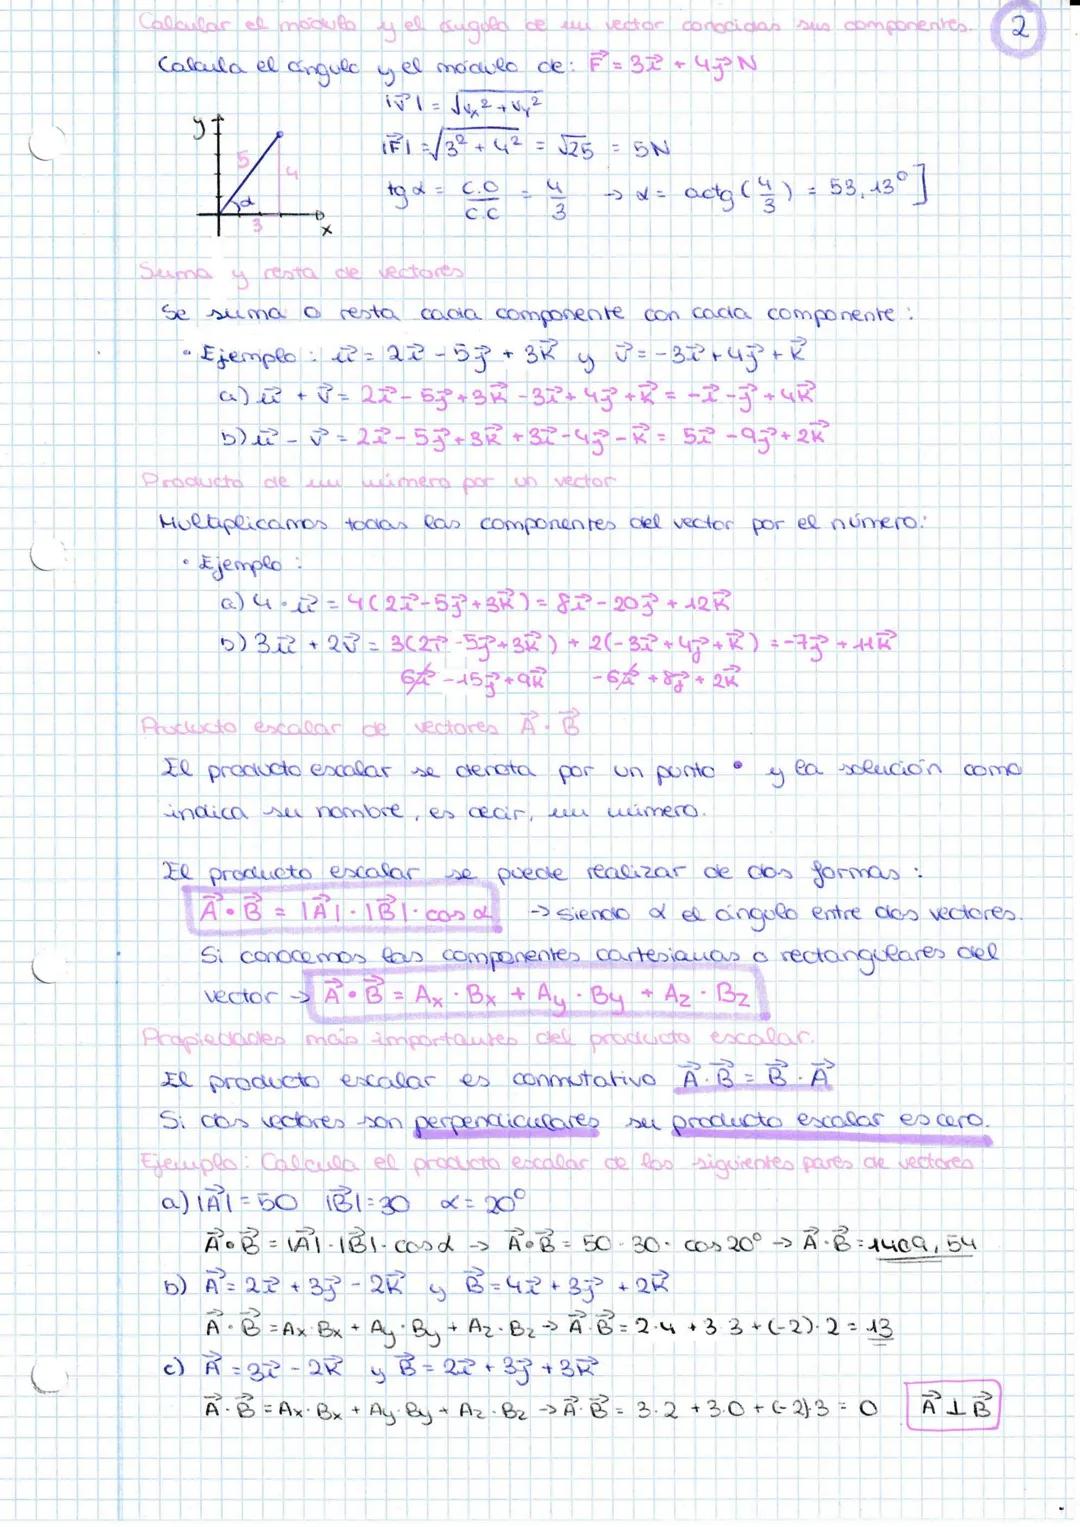 Calcular el módulo y el ángulo de un vector conocidas sus componentes. 2
Calcula el ángulo y el módulo de: F⃗ = 3i⃗ + 4j⃗ N
|v⃗| = √(vx² + vy²)
|F⃗| = √(3² + 4²) = √25 = 5N
tg α = c.o / c.c = 4/3 → α = actg (4/3) = 53,13º]
y 5 4 α 3 x
Suma y resta de vectores
Se suma o resta cada componente con cada componente:
• Ejemplo: u⃗ = 2i⃗ - 5j⃗ + 3k⃗ y v⃗ = -3i⃗ + 4j⃗ + k⃗
a) u⃗ + v⃗ = 2i⃗ - 5j⃗ + 3k⃗ - 3i⃗ + 4j⃗ + k⃗ = -i⃗ - j⃗ + 4k⃗
b) u⃗ - v⃗ = 2i⃗ - 5j⃗ + 3k⃗ + 3i⃗ - 4j⃗ - k⃗ = 5i⃗ - 9j⃗ + 2k⃗
Producto de un número por un vector
Multiplicamos todas las componentes del vector por el número:
• Ejemplo:
a) 4 · u⃗ = 4(2i⃗ - 5j⃗ + 3k⃗) = 8i⃗ - 20j⃗ + 12k⃗
b) 3u⃗ + 2v⃗ = 3(2i⃗ - 5j⃗ + 3k⃗) + 2(-3i⃗ + 4j⃗ + k⃗) = -7j⃗ + 11k⃗
6i⃗ - 15j⃗ + 9k⃗ -6i⃗ + 8j⃗ + 2k⃗
Producto escalar de vectores A⃗ · B⃗
El producto escalar se denota por un punto • y la solución como
indica su nombre, es decir, un número.
El producto escalar se puede realizar de dos formas:
A⃗ • B⃗ = |A⃗| · |B⃗| · cos α → siendo α el ángulo entre dos vectores.
Si conocemos las componentes cartesianas o rectangulares del
vector → A⃗ • B⃗ = Ax · Bx + Ay · By + Az · Bz
Propiedades más importantes del producto escalar.
El producto escalar es conmutativo A⃗ · B⃗ = B⃗ · A⃗
Si dos vectores son perpendiculares su producto escalar es cero.
Ejemplo: Calcula el producto escalar de los siguientes pares de vectores
a) |A⃗| = 50 |B⃗| = 30 α = 20º
A⃗ • B⃗ = |A⃗| · |B⃗| · cos α → A⃗ • B⃗ = 50 · 30 · cos 20º → A⃗ · B⃗ = 1409,54
b) A⃗ = 2i⃗ + 3j⃗ - 2k⃗ y B⃗ = 4i⃗ + 3j⃗ + 2k⃗
A⃗ · B⃗ = Ax · Bx + Ay · By + Az · Bz → A⃗ · B⃗ = 2·4 + 3·3 + (-2)·2 = 13
c) A⃗ = 3i⃗ - 2k⃗ y B⃗ = 2i⃗ + 3j⃗ + 3k⃗
A⃗ · B⃗ = Ax · Bx + Ay · By + Az · Bz → A⃗ · B⃗ = 3·2 + 3·0 + (-2)·3 = 0 A⃗ ⊥ B⃗